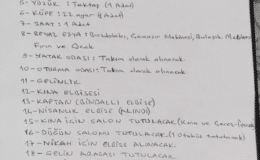 5- YÜZÜK : Tektaş (1 Adet)
6- KÜPE : 22 ayar (1 Adet)
7- SAAT : 1 Adet
8- BEYAZ EŞYA : Buzdolabı, Çamaşır Makinesi, Bulaşık Makinesi
Fırın ve Ocak
9- YATAK ODASI : Takım olarak alınacak
10- OTURMA ODASI : Takım olarak alınacak
11- GELİNLİK
12- KINA ELBİSESİ
13- KAFTAN (BİNDALLI ELBİSE)
14- NİŞANLIK ELBİSE (ALINDI)
15- KINA İÇİN SALON TUTULACAK (Kına ve
16- DÜĞÜN SALONU TUTULACAK (1 Otobüs tutulacak)
17- NİKAH İÇİN ELBİSE ALINACAK
18- GELİN ARABASI TUTULACAK